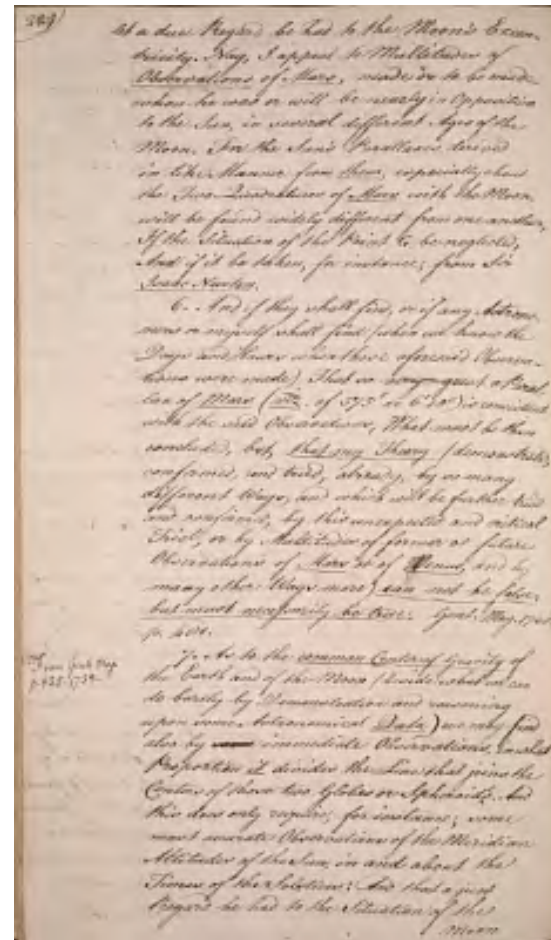 229/
let a due Regard be had to the Moon's Eccen-
tricity. Nay, I appeal to Multitudes of
Observations of Mars, made or to be made
when he was or will be nearly in Opposition
to the Sun, in several different Ages of the
Moon. For the Sun's Parallaxes derived
in like Manner from them, especially about
the Two Quadratures of Mars with the Moon
will be found widely different from one another,
If the Situation of the Point be neglected,
And if it be taken, for instance, from Sir
Isaac Newton.
6. And if they shall find, or if any Astrono-
mers or myself shall find (when we know the
Days and Hours when those aforesaid Observa-
tions were made) That so great a Paral-
lax of Mars (viz. of is consistent
with the said Observations, What must be then
concluded, but, that my Theory (demonstrated,
confirmed, and tried, already, by so many
different Ways, and which will be further tried
and confirmed, by this unexpected and critical
Trial, or by Multitudes of former or future
Observations of Mars or of Venus, and by
many other Ways more) can not be false,
but must necessarily be true. Gent. Mag.
p.
7. As to the common Center of Gravity of
the Earth and of the Moon (beside what we can
do barely by Demonstration and reasoning
upon some Astronomical Data) we may find
also by immediate Observations, in what
Proportion it divides the Line that joins the
Centers of those two Globes or Spheroids. And
this does only require, for instance, some
most accurate Observations of the Meridian
Altitudes of the Sun, in and about the
Times of the Solstices: And that a just
Regard be had to the Situation of the
Moon
From Gent Mag
p.